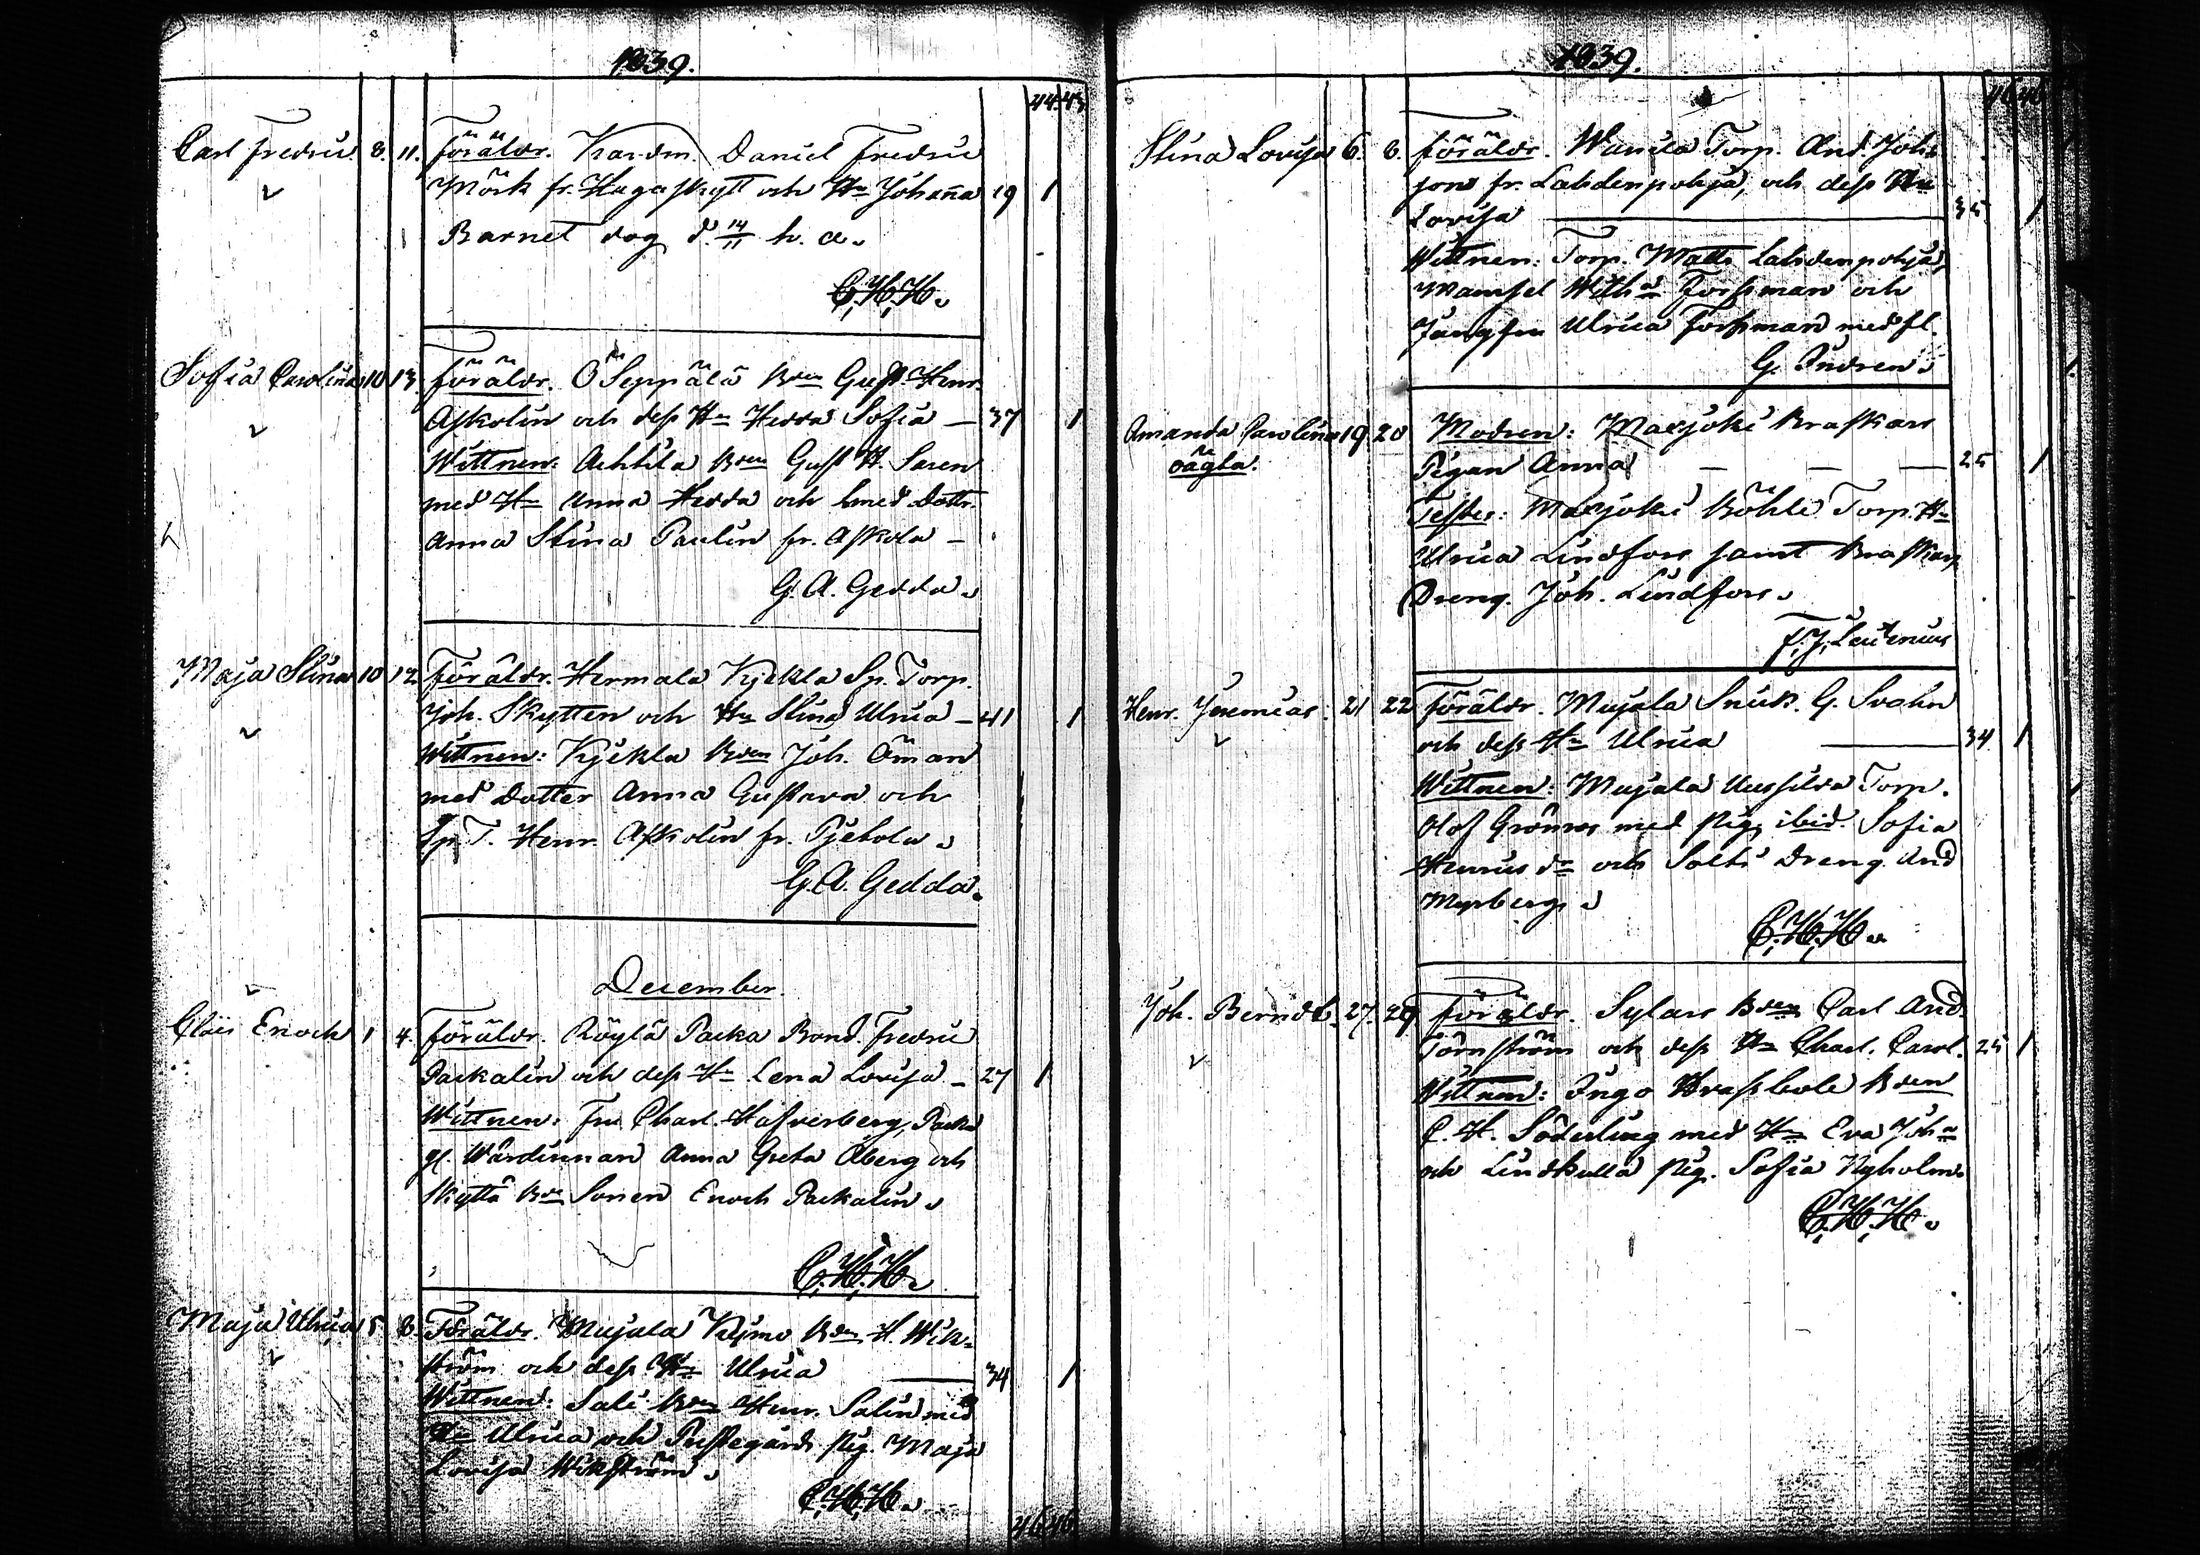 1839.
44 43
Carl Fredric 8. 11. Föräldr. Kardm. Daniel Fredric
Mörk fr. Hagaskytt och Hu Johanna 19 1
Barnet dog d. 14/11 h. a.
C.H.H.
Sofia Carolina 10 13. Föräldr. Ö Seppälä Bden Gust. Henr.
Askolin och dess Hu Hedda Sofia — 37 1
Wittnen: Achtila Bden Gust. H. Saren
med Hu Anna Hedda och Smed Dottr.
Anna Stina Paulin fr. Askola —
G. A. Gedda.
Maja Stina 10 12 Föräldr. Hermala Kjekla Sp. Torp.
Joh. Skytten och Hu Stina Ulrica — 41 1
Wittnen: Kjekla Bden Joh. Öman
med Dotter Anna Gustava och
Sp. T. Henr. Askolin fr. Pjetola.
G. A. Gedda.
December.
Enoch 1 4. Föräldr. Röylä Packa Bond. Fredric
Packalin och dess Hu Lena Lovisa — 27 1
Wittnen: Fru Charl. Hafverberg, Packa
gl. Wärdinnan Anna Greta Öberg och
Skyttä Bde Sonen Enoch Packalin.
C.H.H.
Maja Ulrica 5 8 Föräldr. Mujala Bden H. Wik-
ström och dess Hu Ulrica — 34 1
Wittnen: Sali Bden Henr. Salin med
Hu Ulrica och Prestegårds pig. Maja
Lovisa Wikström.
C.H.H.
46 46
1839.
Stina Lovisa 6. 8. Föräldr. Wanila Torp. And. Johs
son fr. Lahdenpohja, och dess Hu
Lovisa — 35 1
Wittnen: Torp. Matts Lahdenpohja,
Mamsell Forssman och
Jungfru Ulrica Forssman med fl.
G. Indren.
Amanda Carolina 19 20 Modren: Marjoki Kraskars
oägta. Pigan Anna — — — 25 1
Testes: Marjoki Böhle Torp. Hu
Ulrica Lindfors samt Kraskars
Dreng. Joh. Lindfors.
F. J.
Henr. Jeremias. 21 22 Föräldr. Mujala Snick. G. Svahn
och dess Hu Ulrica — 34 1
Wittnen: Mujala Torp.
Olof Grönroos med pig. ibid. Sofia
Henricsdr och Solti Dreng. And
Myrberg.
C.H.H.
Joh. Berndt. 27. 29 Föräldr. Sylars Bden Carl And.
Törnström och dess Hu Charl. Carol. 25 1
Wittnen: Ingo Bden
C. H. Söderling med Hu Eva Joha
och Lindkulla pig. Sofia Nyholm
C.H.H.